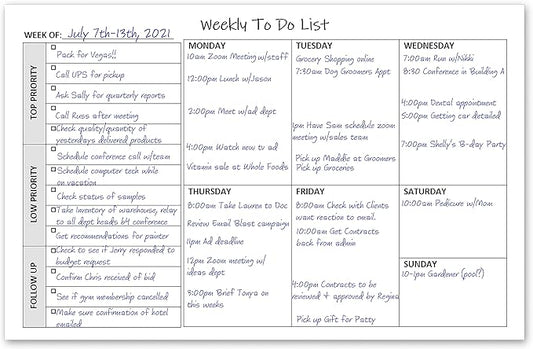 Weekly To Do List
WEEK OF: July 7th-13th, 2021
TOP PRIORITY
Pack for Vegas!!
Call UPS for pickup
Ask Sally for quarterly reports
Call Russ after meeting
Check quality/quantity of
yesterdays delivered products
LOW PRIORITY
Schedule conference call w/team
Schedule computer tech while
on vacation
Check status of samples
Take Inventory of warehouse, relay
to all dept heads b4 conference
Get recommendations for painter
FOLLOW UP
Check to see if Jerry responded to
budget request
Confirm Chris received of bid
See if gym membership cancelled
Make sure confirmation of hotel
emailed
MONDAY
10am Zoom Meeting w/staff
12:00pm Lunch w/Jason
2:00pm Meet w/ad dept
4:00pm Watch new tv ad
Vitamin sale at Whole Foods
TUESDAY
Grocery Shopping online
7:30am Dog Groomers Appt
1pm Have Sam schedule zoom
meeting w/sales team
Pick up Maddie at Groomers
Pick up Groceries
WEDNESDAY
7:00am Run w/Nikki
8:30 Conference in Building A
4:00pm Dental appointment
5:00pm Getting car detailed
7:00pm Shelly's B-day Party
THURSDAY
8:00am Take Lauren to Doc
Review Email Blast campaign
11pm Ad deadline
12pm Zoom meeting w/
ideas dept
3:00pm Brief Tonya on
this weeks
FRIDAY
8:00am Check with Clients
want reaction to email.
10:00am Get Contracts
back from admin
4:00pm Contracts to be
reviewed & approved by Regina
Pick up Gift for Patty
SATURDAY
10:00am Pedicure w/Mom
SUNDAY
10-1pm Gardener (pool?)